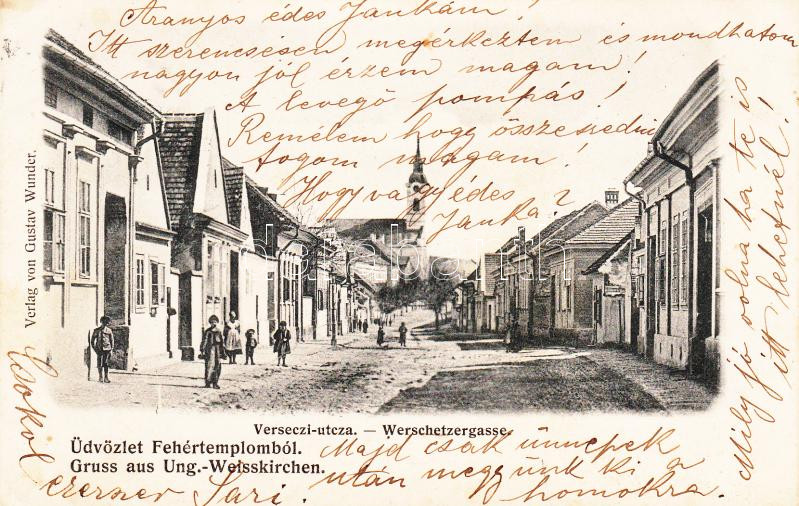 Aranyos édes Jankám!
Itt szerencsésen megérkeztem és mondhatom
nagyon jól érzem magam!
A levegő pompás!
Remélem hogy összeszedni
fogom magam!
Hogy vagy édes
Janka?
Mily jó volna ha te is
itt lehetnél!
Verlag von Gustav Wunder.
Verseczi-utcza. — Werschetzergasse.
Üdvözlet Fehértemplomból.
Gruss aus Ung.-Weisskirchen.
Majd csak ünnepek
után megyünk ki a
homokra.
Csokol
ezerszer Sári.